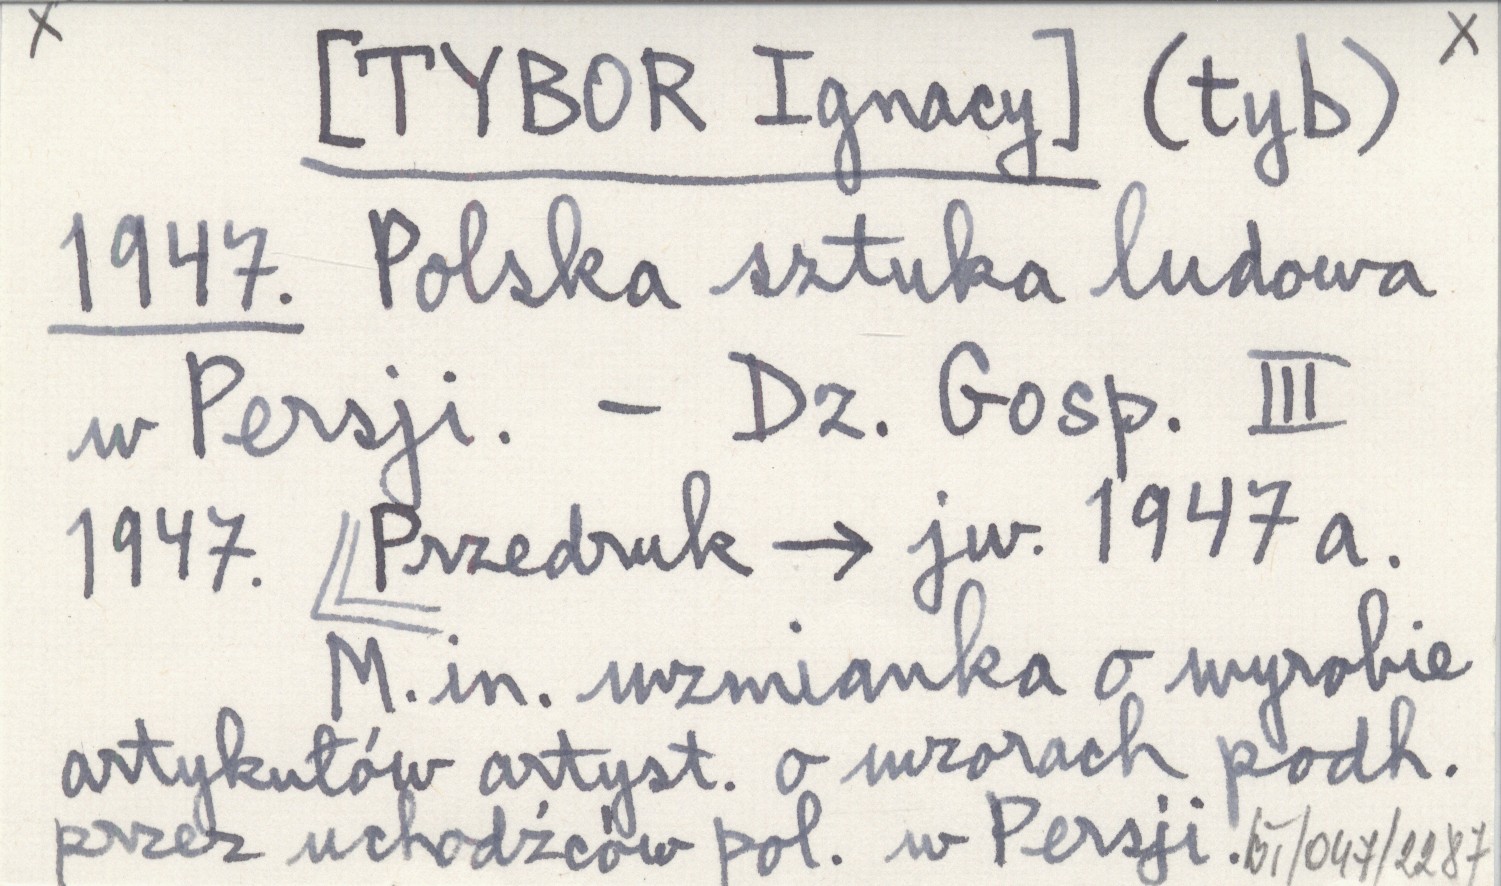 x x
[TYBOR Ignacy] (tyb)
1947. Polska sztuka ludowa
w Persji. – Dz. Gosp. III
1947. Przedruk → jw. 1947 a.
M. in. wzmianka o wyrobie
artykułów artyst. o wzorach podh.
przez uchodźców pol. w Persji. /047/2287